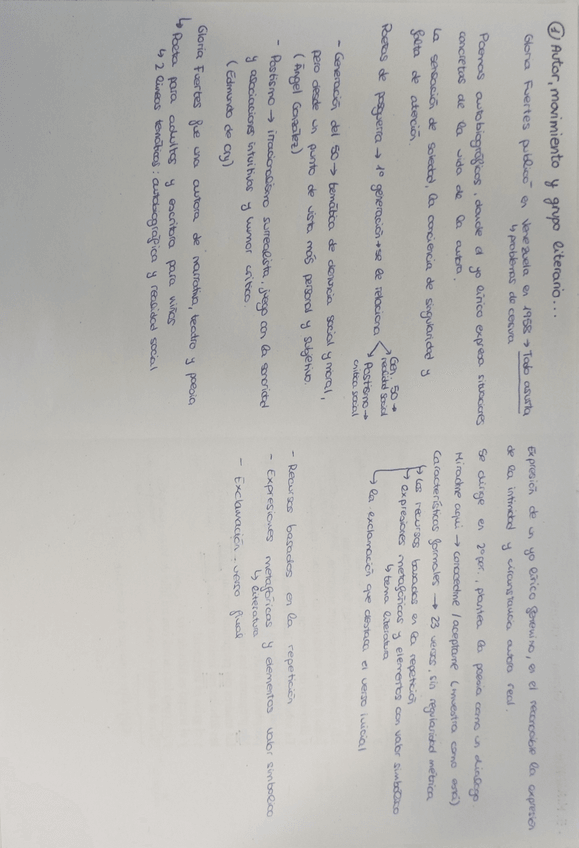 ① Autor, movimiento y grupo literario...
Gloria Fuertes publicó en Venezuela en 1958 → Todo asusta
↳ problemas de censura
Poemas autobiográficos, donde el yo lírico expresa situaciones
concretas de la vida de la autora.
La sensación de soledad, la conciencia de singularidad y
falta de atención
Poetas de posguerra → 1ª generación → se le relaciona
Gen 50 →
realidad social
Postismo →
crítica social
- Generación del 50 → temática de denuncia social y moral,
pero desde un punto de vista más personal y subjetivo.
(Ángel González)
- Postismo → irracionalismo surrealista, juego con la sonoridad
y asociaciones intuitivas y humor crítico.
(Edmundo de Ory)
Gloria Fuertes fue una autora de narrativa, teatro y poesía
↳ Poeta para adultos y escritora para niños
↳ 2 líneas temáticas: autobiográfica y realidad social
Expresión de un yo lírico femenino, en el reconocible la expresión
de la intimidad y circunstancia autora real.
Se dirige en 2ª per., plantea la poesía como un diálogo.
Miradme aquí → conocedme / aceptarme (muestra como está)
Características formales → 23 versos, sin regularidad métrica
↳ los recursos basados en la repetición
↳ expresiones metafóricas y elementos con valor simbólico
↳ tema literatura
↳ la exclamación que destaca el verso inicial
- Recursos basados en la repetición
- Expresiones metafóricas y elementos valor simbólico
↳ literatura
- Exclamación: verso final